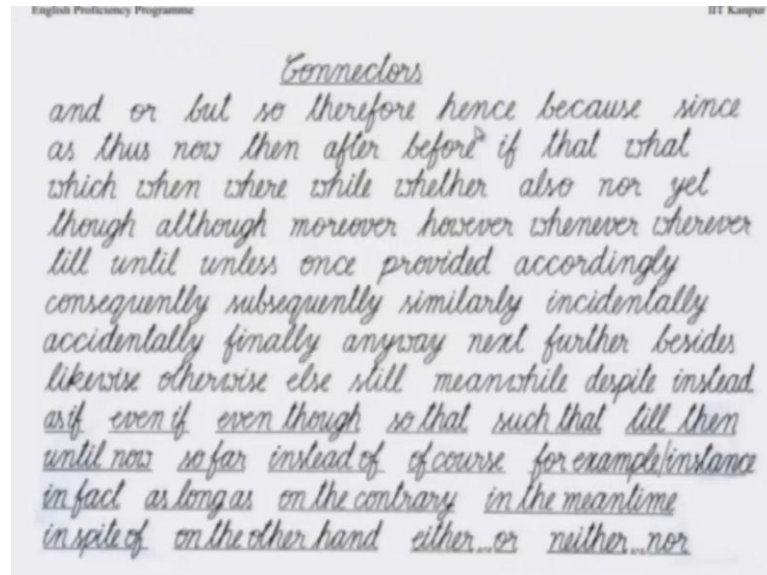 English Proficiency Programme IIT Kanpur
Connectors
and or but so therefore hence because since
as thus now then after before if that what
which when where while whether also nor yet
though although moreover however whenever wherever
till until unless once provided accordingly
consequently subsequently similarly incidentally
accidentally finally anyway next further besides
likewise otherwise else still meanwhile despite instead
as if even if even though so that such that till then
until now so far instead of of course for example/instance
in fact as long as on the contrary in the meantime
in spite of on the other hand either...or neither...nor